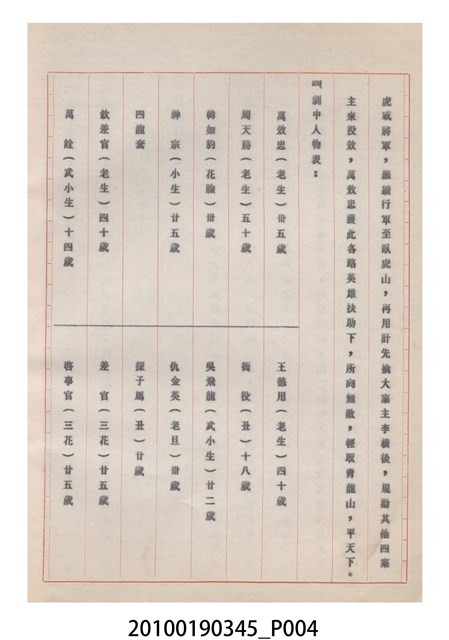 虎威將軍，繼續行軍至臥虎山，再用計先擒大寨主李橫後，規勸其他四寨
主來投效，萬效忠獲此各路英雄扶助下，所向無敵，輕取青龍山，平天下。
四、劇中人物表：
萬效忠（老生）卅五歲
王德用（老生）四十歲
周天勝（老生）五十歲
衙役（丑）十八歲
韓如豹（花臉）卅歲
吳飛龍（武小生）廿二歲
神宗（小生）廿五歲
仇金英（老旦）卌歲
四龍套
探子馬（丑）廿歲
欽差官（老生）四十歲
差官（三花）廿五歲
萬銓（武小生）十四歲
啓事官（三花）廿五歲
20100190345_P004